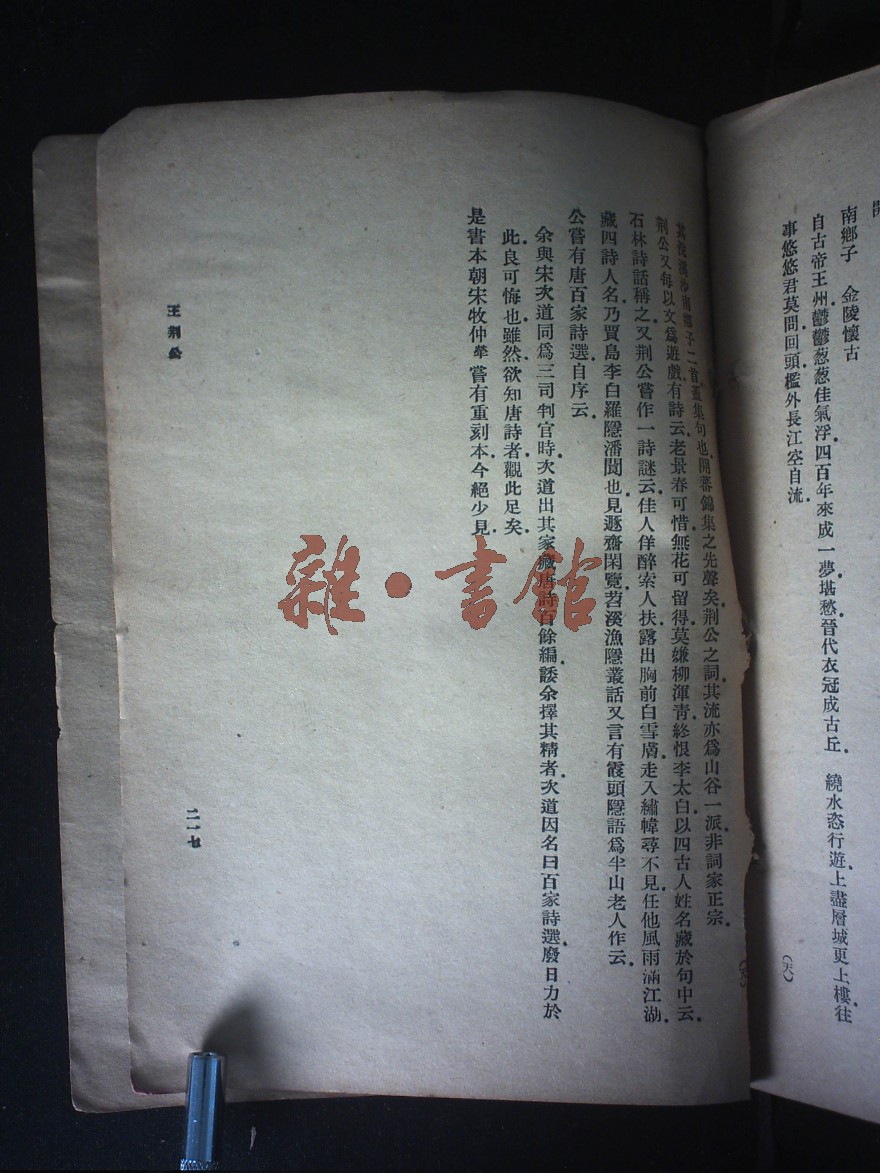 南鄉子　金陵懷古
自古帝王州.鬱鬱葱葱佳氣浮.四百年來成一夢.堪愁.晉代衣冠成古丘.　繞水恣行遊.上盡層城更上樓.往
事悠悠君莫問.回頭.檻外長江空自流.
南鄉子二首.蓋集句也.開蕃錦集之先聲矣.荊公之詞.其流亦爲山谷一派.非詞家正宗.
荊公又每以文爲遊戲.有詩云.老景春可惜.無花可留得.莫嫌柳渾青.終恨李太白.以四古人姓名藏於句中云.
石林詩話稱之.又荊公嘗作一詩謎云.佳人佯醉索人扶.露出胸前白雪膚.走入繡幃尋不見.任他風雨滿江湖.
藏四詩人名.乃賈島李白羅隱潘閬也.見遯齋閑覽.苕溪漁隱叢話又言有霞頭隱語爲半山老人作云.
公嘗有唐百家詩選.自序云.
余與宋次道同爲三司判官時.次道出其家藏唐詩百餘編.諉余擇其精者.次道因名曰百家詩選.廢日力於
此.良可悔也.雖然.欲知唐詩者.觀此足矣.
是書本朝宋牧仲犖嘗有重刻本.今絕少見.
王荊公
二一七
雜·書館